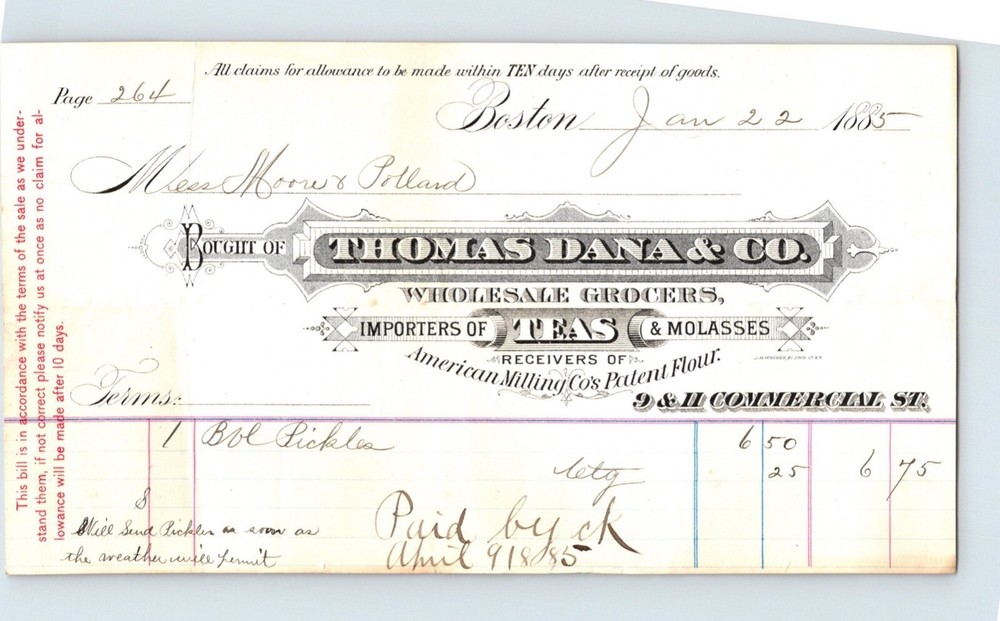 All claims for allowance to be made within TEN days after receipt of goods.
Page 264
Boston Jan 22 1885
Mess Moore & Pollard
BOUGHT OF THOMAS DANA & CO.
WHOLESALE GROCERS,
IMPORTERS OF TEAS & MOLASSES
RECEIVERS OF
American Milling Co's Patent Flour.
Terms:
9 & 11 COMMERCIAL ST.
1 Bbl Pickles 6 50
Ctg 25 6 75
Will Send Pickles as soon as
the weather will permit
Paid by ck
April 9 1885
This bill is in accordance with the terms of the sale as we under-
stand them, if not correct please notify us at once as no claim for al-
lowance will be made after 10 days.